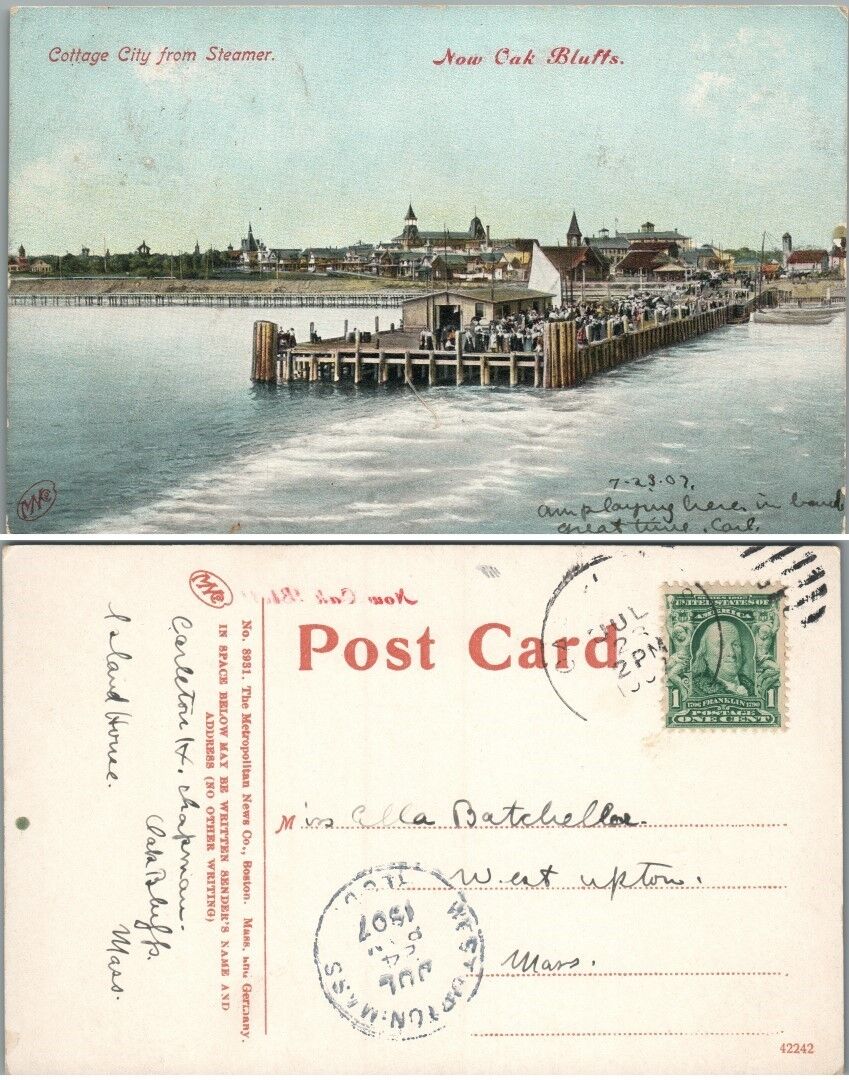 Cottage City from Steamer.
Now Oak Bluffs.
MNCo
7-23-07.
am playing here in band
great time. Carl.
MNCo
Now Oak Bluffs
Post Card
JUL
23
2 PM
SERIES 1902
UNITED STATES OF
AMERICA
1
1706 FRANKLIN 1790
POSTAGE
ONE CENT
No. 8931. The Metropolitan News Co., Boston. Mass. and Germany.
IN SPACE BELOW MAY BE WRITTEN SENDER'S NAME AND
ADDRESS (NO OTHER WRITING)
Carleton H. Chapman.
Oak Bluffs.
Mass.
Island House.
Miss Ella Batchellor.
West Upton.
Mass.
WEST UPTON. MASS
JUL
24
1907
REC'D.
42242